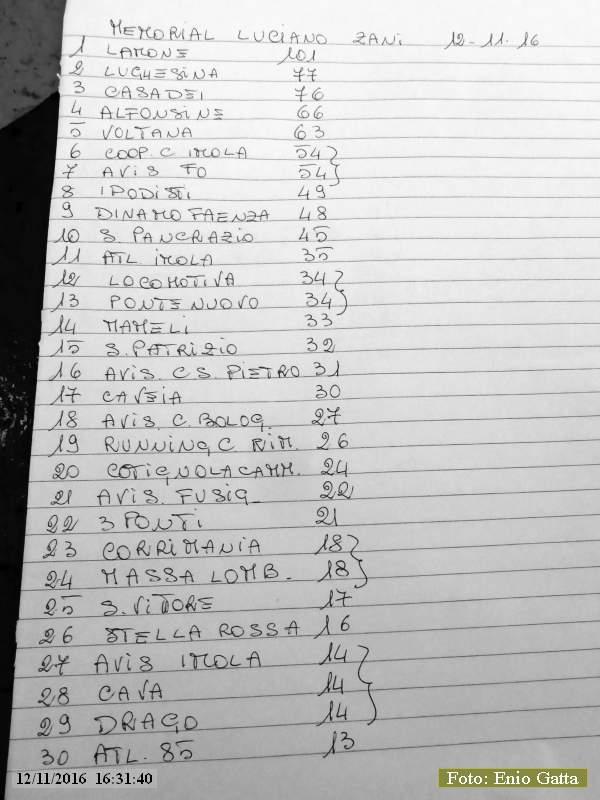 MEMORIAL LUCIANO ZANI 12-11.16
1 LAMONE 101
2 LUGHESINA 77
3 CASADEI 76
4 ALFONSINE 66
5 VOLTANA 63
6 COOP. C IMOLA 54
7 AVIS FO 54
8 IPODISTI 49
9 DINAMO FAENZA 48
10 S. PANCRAZIO 45
11 ATL. IMOLA 35
12 LOCOMOTIVA 34
13 PONTENUOVO 34
14 MAMELI 33
15 S. PATRIZIO 32
16 AVIS C S. PIETRO 31
17 CAVEIA 30
18 AVIS. C. BOLOG. 27
19 RUNNING C RIM. 26
20 COTIGNOLA CAMM. 24
21 AVIS FUSIG_ 22
22 3 PONTI 21
23 CORRIMANIA 18
24 MASSA LOMB. 18
25 S. VITORE 17
26 STELLA ROSSA 16
27 AVIS IMOLA 14
28 CAVA 14
29 DRAGO 14
30 ATL. 85 13
12/11/2016 16:31:40
Foto: Enio Gatta